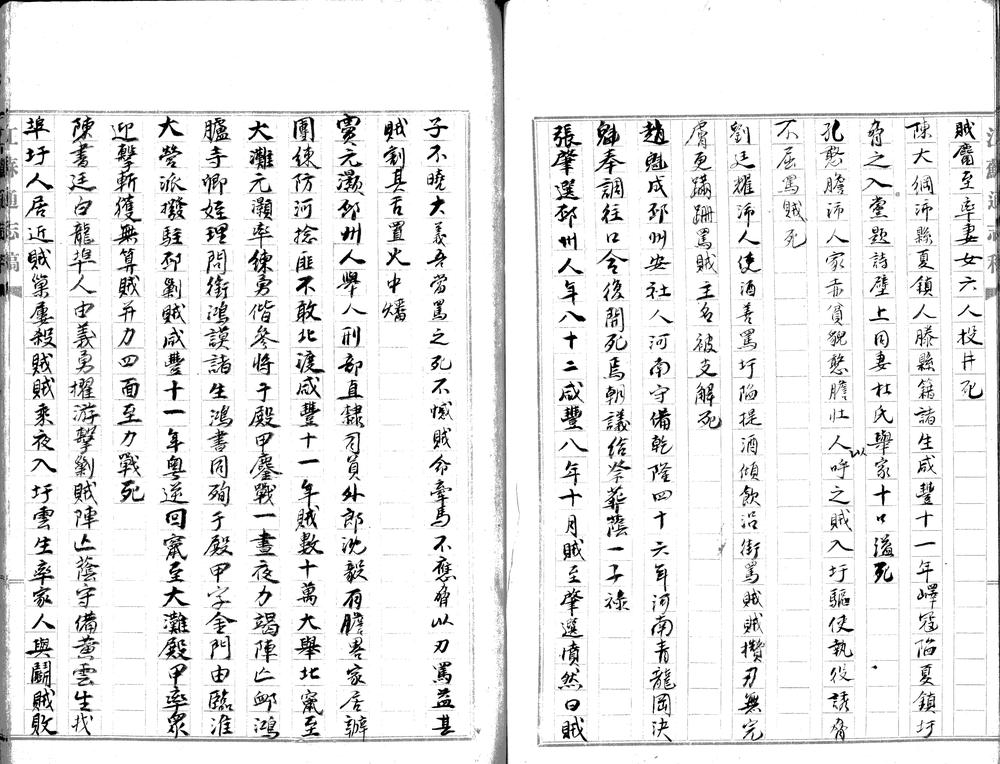 江蘇通志稿
賊麕至率妻女六人投井死
陳大綱沛縣夏鎮人滕縣籍諸生咸豐十一年嶧寇陷夏鎮圩
脅之入黨題詩壁上同妻杜氏舉家十口溢死
孔憨膽沛人家赤貧貌憨膽壯人以呼之賊入圩驅使執役諸脅
不屈罵賊死
劉廷耀沛人使酒善罵圩陷提酒傾飲沿街罵賊賊攢刃無完
膚更蹣跚罵賊主名被支解死
趙魁成邳州安社人河南守備乾隆四十六年河南青龍岡決
魁奉調往口合後閉死焉朝議給祭葬蔭一子祿
張肇選邳州人年八十二咸豐八年十月賊至肇選憤然曰賊
子不曉大義吾當罵之死不憾賊命牽馬不應脅以刃罵益甚
賊割其舌置火中燔
竇元灝邳州人舉人刑部直隸司員外郎沈毅有膽畧家居辦
團練防河捻匪不敢北渡咸豐十一年賊數十萬大舉北竄至
大灘元灝率練勇偕參將于殿甲鏖戰一晝夜力竭陣亡卹鴻
臚寺卿姪理問銜鴻謨諸生鴻書同殉于殿甲字金門由臨淮
大營派撥駐邳剿賊咸豐十一年粵逆回竄至大灘殿甲率眾
迎擊斬獲無算賊并力四面至力戰死
陳書廷白龍埠人由義勇擢游擊剿賊陣亡蔭守備黃雲生找
埠圩人居近賊巢屢殺賊賊乘夜入圩雲生率家人與鬭賊敗
江蘇通志稿